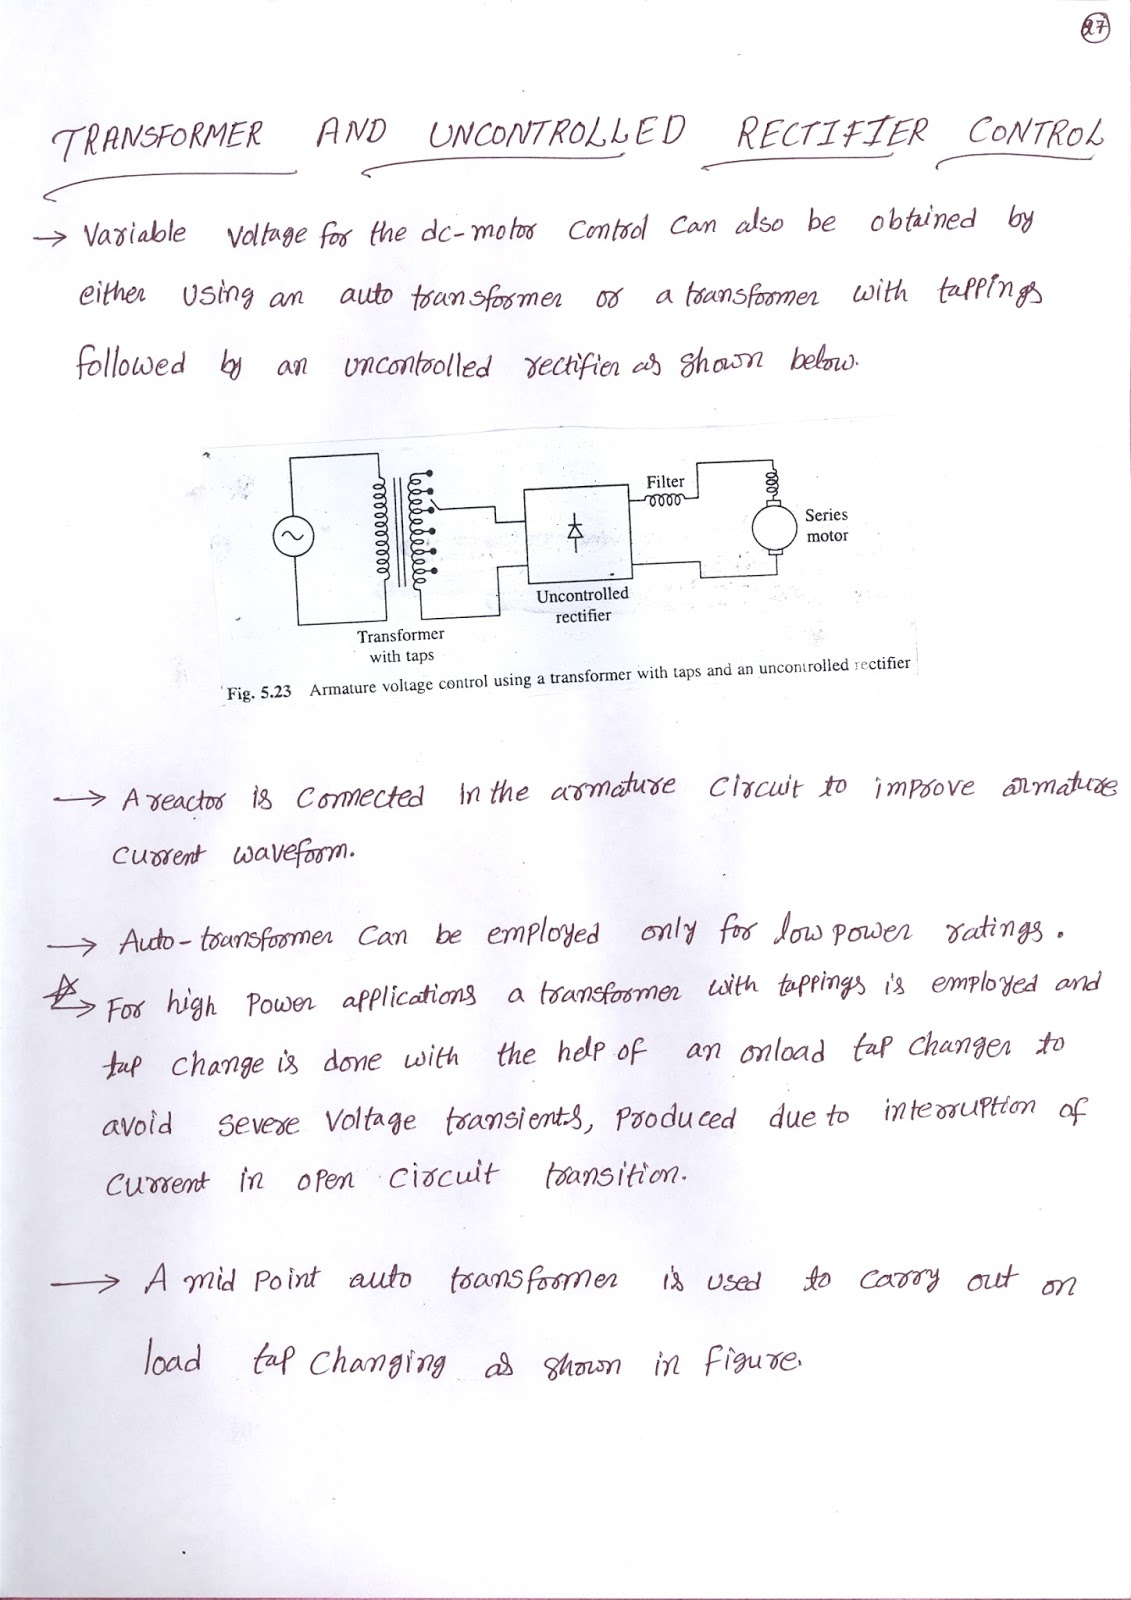 27
TRANSFORMER AND UNCONTROLLED RECTIFIER CONTROL
→ Variable voltage for the dc-motor control can also be obtained by
either using an auto transformer or a transformer with tappings
followed by an uncontrolled rectifier as shown below.
Filter
Series
motor
Uncontrolled
rectifier
Transformer
with taps
Fig. 5.23 Armature voltage control using a transformer with taps and an uncontrolled rectifier
→ A reactor is connected in the armature circuit to improve armature
current waveform.
→ Auto-transformer can be employed only for low power ratings.
→ For high power applications a transformer with tappings is employed and
tap change is done with the help of an onload tap changer to
avoid severe voltage transients, produced due to interruption of
current in open circuit transition.
→ A mid point auto transformer is used to carry out on
load tap changing as shown in figure.